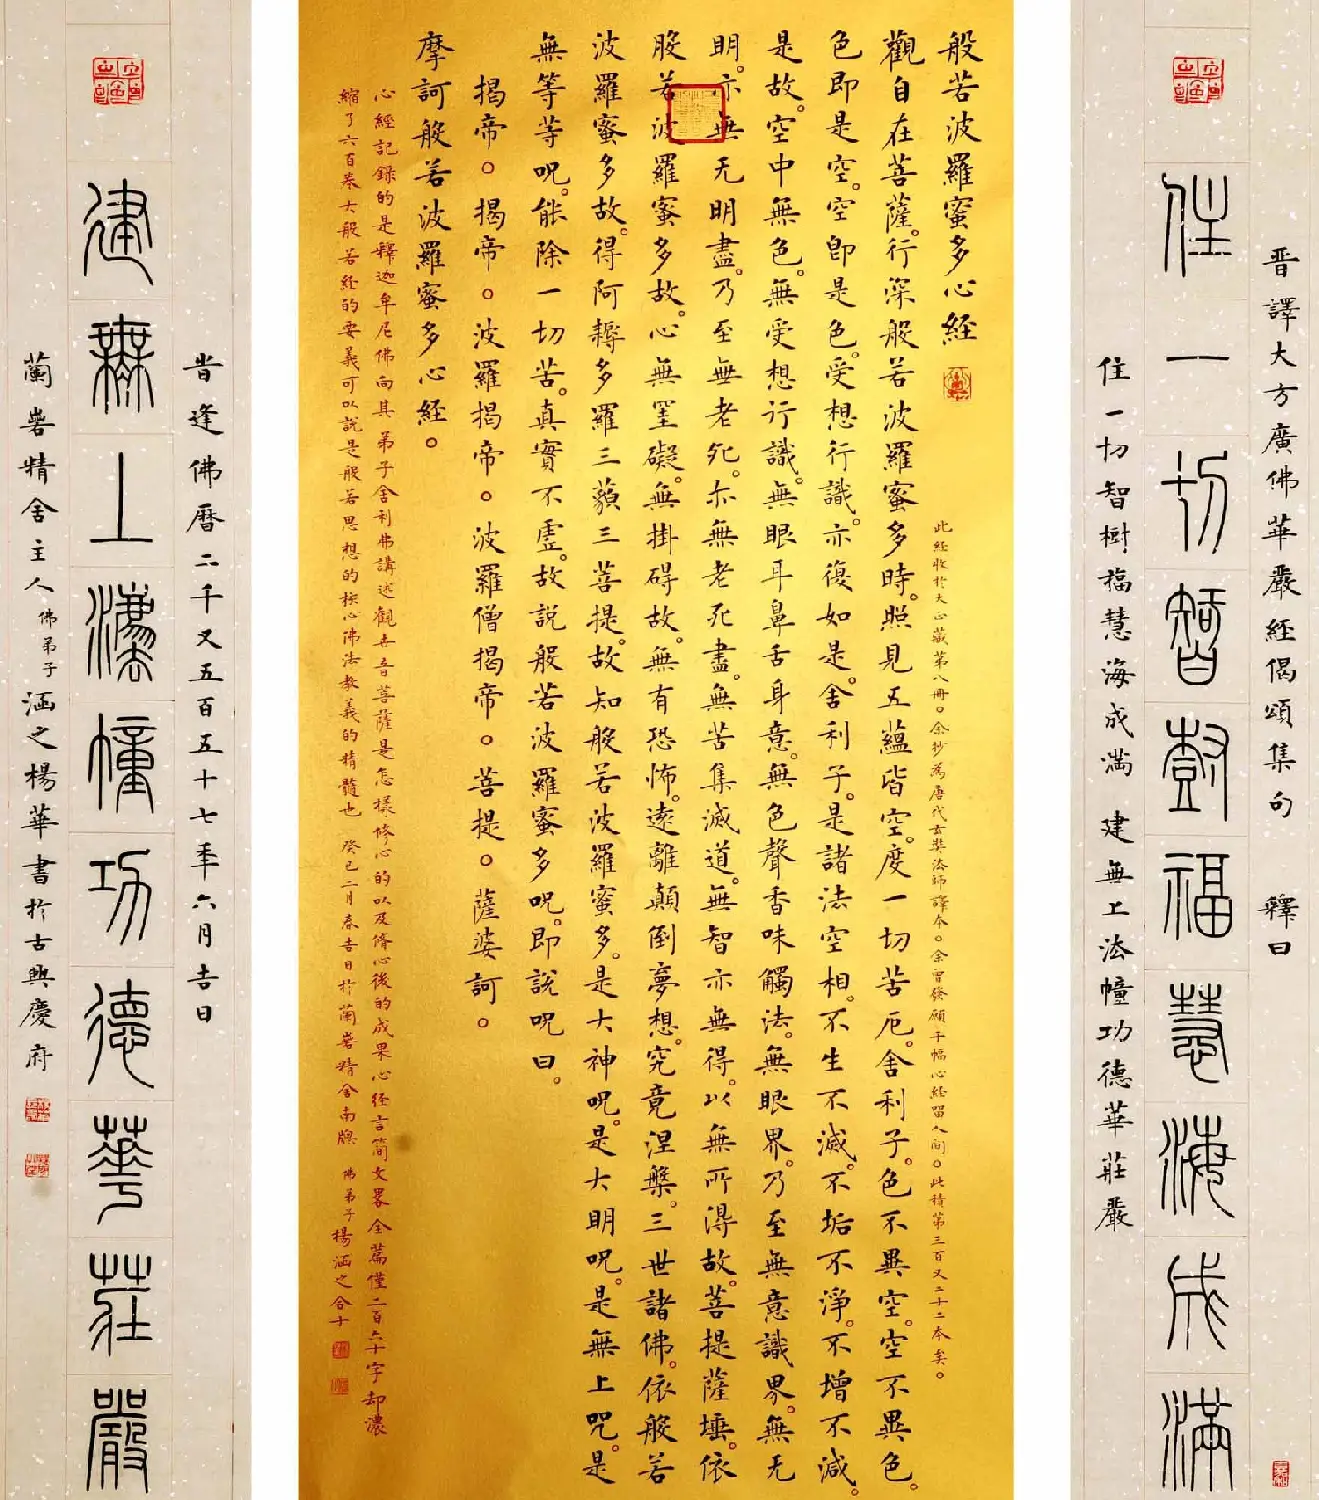 晋譯大方廣佛華嚴經偈頌集句 釋曰
住一切智樹福慧海成滿
住一切智樹福慧海成滿 建無上法幢功德華莊嚴
般若波羅蜜多心経
此経收於大正藏第八冊。余抄為唐代玄奘法師譯本。余曾發願千幅心経留人間。此積第三百又二十二本矣。
觀自在菩薩。行深般若波羅蜜多時。照見五蘊皆空。度一切苦厄。舍利子。色不異空。空不異色。
色即是空。空即是色。受想行識。亦復如是。舍利子。是諸法空相。不生不滅。不垢不淨。不增不減。
是故。空中無色。無受想行識。無眼耳鼻舌身意。無色聲香味觸法。無眼界。乃至無意識界。無无
明。亦無无明盡。乃至無老死。亦無老死盡。無苦集滅道。無智亦無得。以無所得故。菩提薩埵。依
般若波羅蜜多故。心無罣礙。無掛碍故。無有恐怖。遠離顛倒夢想。究竟涅槃。三世諸佛。依般若
波羅蜜多故。得阿耨多羅三藐三菩提。故知般若波羅蜜多。是大神呪。是大明呪。是無上呪。是
無等等呪。能除一切苦。真實不虛。故説般若波羅蜜多呪。即説呪曰。
揭帝。揭帝。波羅揭帝。波羅僧揭帝。菩提。薩婆訶。
摩訶般若波羅蜜多心経。
心経記録的是釋迦牟尼佛向其弟子舍利佛講述觀世音菩薩是怎樣修心的以及修心後的成果心経言简文畧全篇僅二百六十字却濃
縮了六百卷大般若経的要義可以説是般若思想的核心佛法教義的精髓也 癸巳二月春吉日於蘭岩精舍南牕 佛弟子楊涵之合十
昔逢佛曆二千又五百五十七年六月吉日
建無上灋幢功德華莊嚴
蘭岩精舍主人佛弟子涵之楊華書於古興慶府